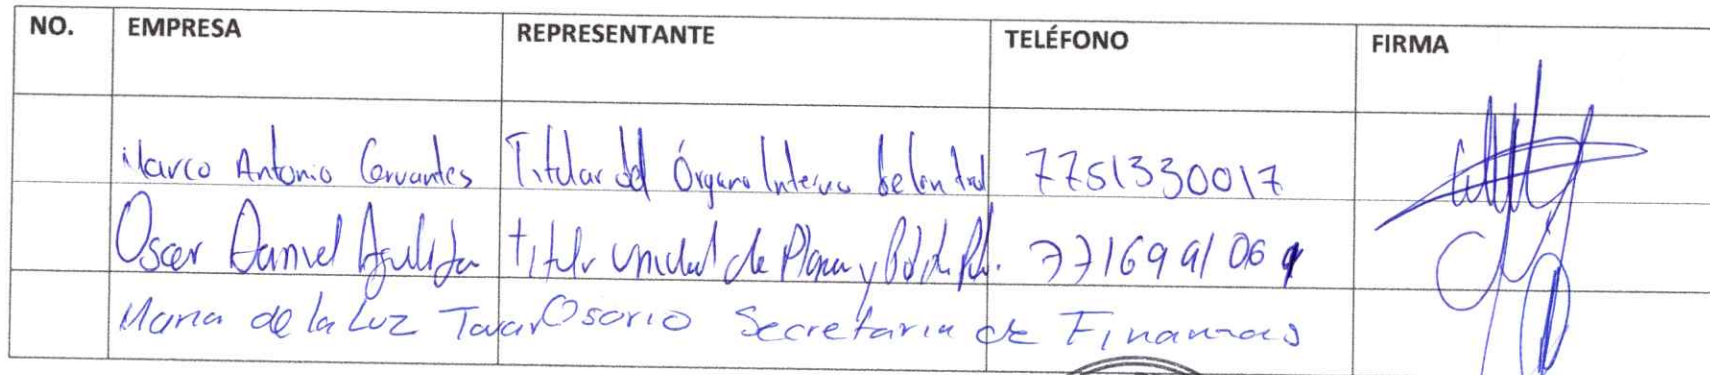 NO. EMPRESA REPRESENTANTE TELÉFONO FIRMA
Marco Antonio Cervantes Titular del Órgano Interno de Control 7751330017
Oscar Daniel titular unidad de y 771699106
Maria de la Luz Tovar Osorio Secretaria de Finanzas